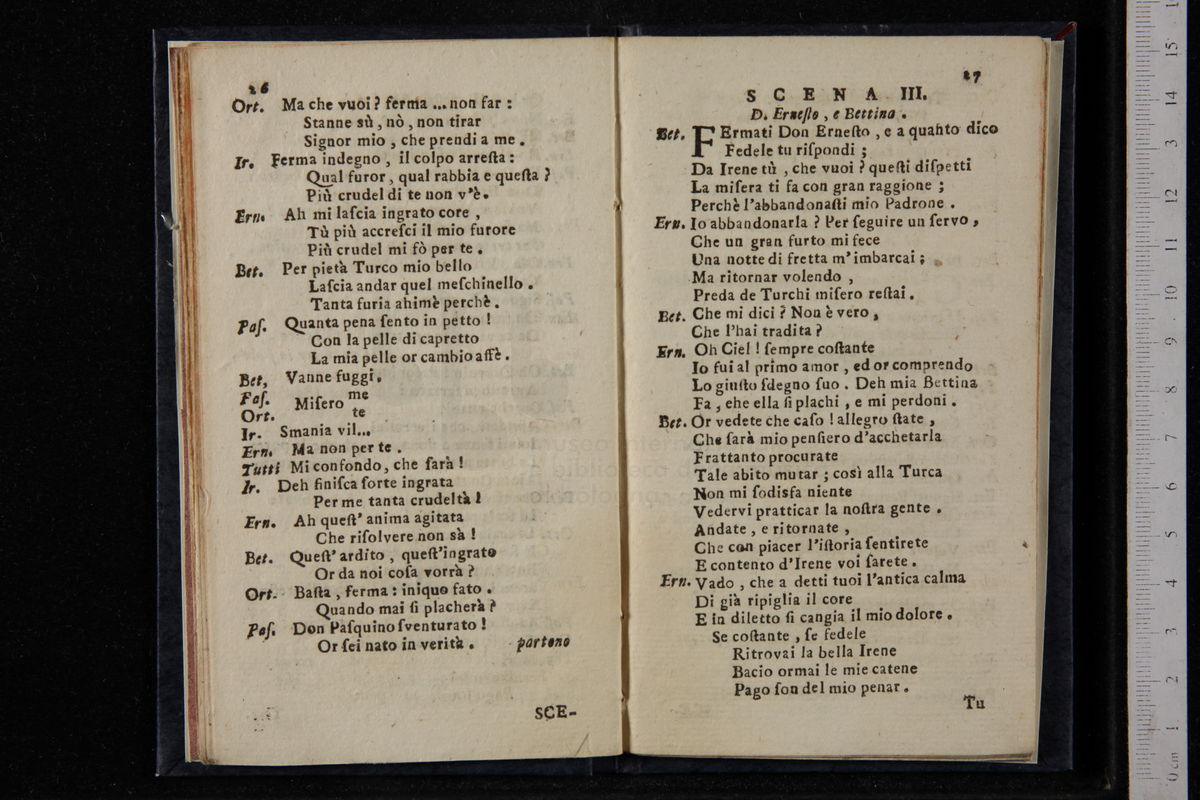 26
Ort. Ma che vuoi? ferma ... non far:
Stanne sù, nò, non tirar
Signor mio, che prendi a me.
Ir. Ferma indegno, il colpo arreſta:
Qual furor, qual rabbia e queſta?
Più crudel di te non v'è.
Ern. Ah mi laſcia ingrato core,
Tù più accreſci il mio furore
Più crudel mi fò per te.
Bet. Per pietà Turco mio bello
Laſcia andar quel meſchinello.
Tanta furia ahimè perchè.
Paſ. Quanta pena ſento in petto!
Con la pelle di capretto
La mia pelle or cambio affè.
Bet, Vanne fuggi.
Paſ. me
Miſero
Ort. te
Ir. Smania vil...
Ern. Ma non per te.
Tutti Mi confondo, che ſarà!
Ir. Deh finiſca ſorte ingrata
Per me tanta crudeltà!
Ern. Ah queſt' anima agitata
Che riſolvere non sà!
Bet. Queſt' ardito, queſt'ingrato
Or da noi coſa vorrà?
Ort. Baſta, ferma: iniquo fato.
Quando mai ſi placherà?
Paſ. Don Paſquino ſventurato!
Or ſei nato in verità. partono
SCE-
27
SCENA III.
D. Erneſto, e Bettina.
Bet. FErmati Don Erneſto, e a quanto dico
Fedele tu riſpondi;
Da Irene tù, che vuoi? queſti diſpetti
La miſera ti fa con gran raggione;
Perchè l'abbandonaſti mio Padrone.
Ern. Io abbandonarla? Per ſeguire un ſervo,
Che un gran furto mi fece
Una notte di fretta m'imbarcai;
Ma ritornar volendo,
Preda de Turchi miſero reſtai.
Bet. Che mi dici? Non è vero,
Che l'hai tradita?
Ern. Oh Ciel! ſempre coſtante
Io fui al primo amor, ed or comprendo
Lo giuſto ſdegno ſuo. Deh mia Bettina
Fa, ehe ella ſi plachi, e mi perdoni.
Bet. Or vedete che caſo! allegro ſtate,
Che ſarà mio penſiero d'acchetarla
Frattanto procurate
Tale abito mutar; così alla Turca
Non mi ſodisfa niente
Vedervi pratticar la noſtra gente.
Andate, e ritornate,
Che con piacer l'iſtoria ſentirete
E contento d'Irene voi ſarete.
Ern. Vado, che a detti tuoi l'antica calma
Di già ripiglia il core
E in diletto ſi cangia il mio dolore.
Se coſtante, ſe fedele
Ritrovai la bella Irene
Bacio ormai le mie catene
Pago ſon del mio penar.
Tu